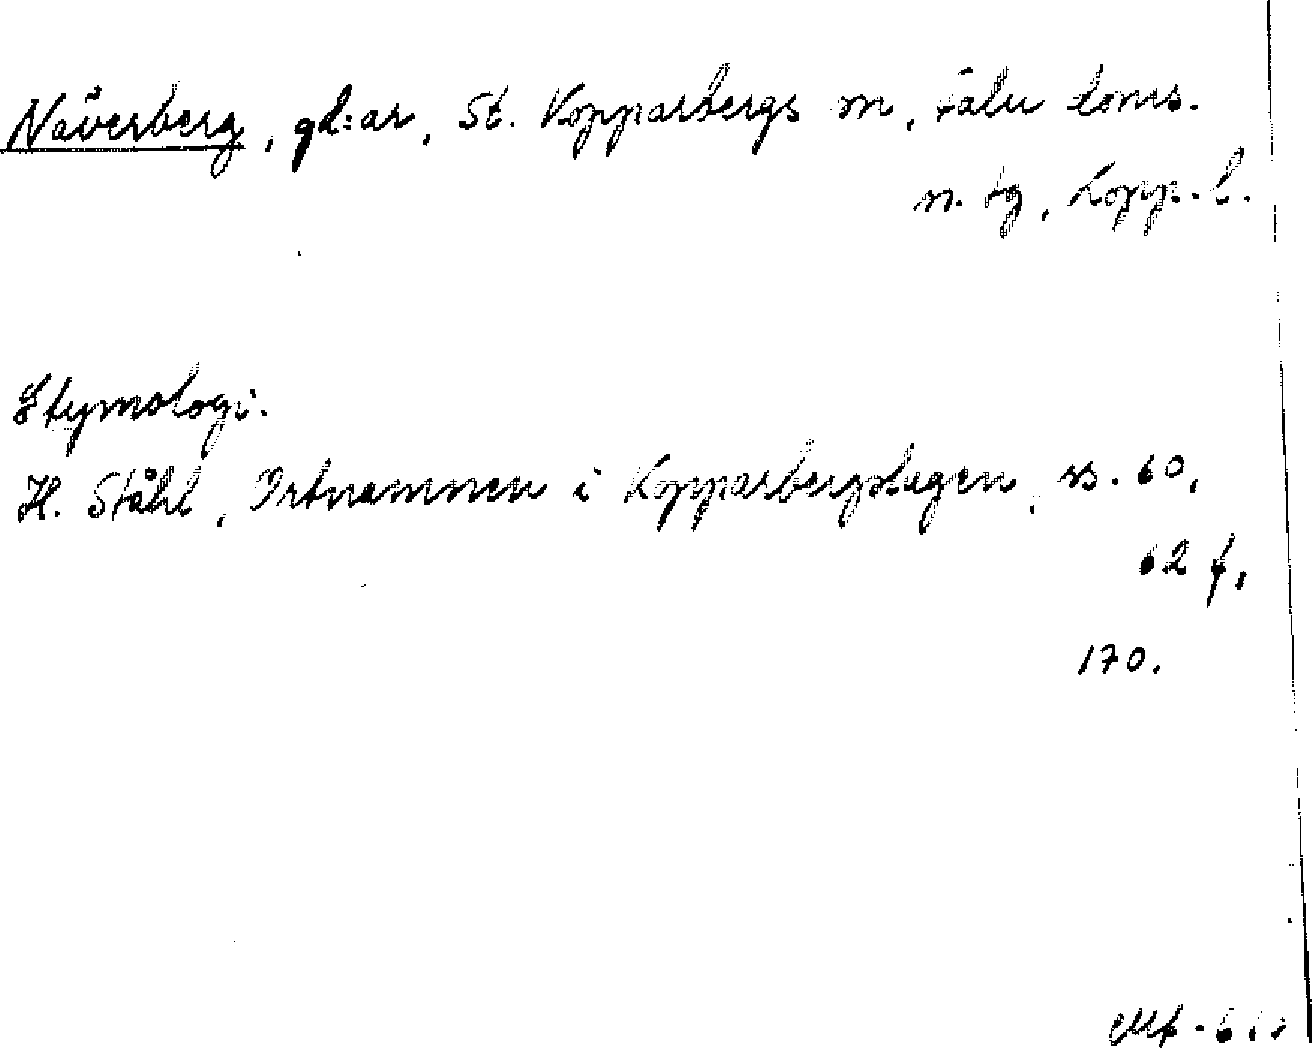 Näverberg, gd:ar, St. Kopparbergs sn, Falu doms.
n. tg, Kopp. l.
Etymologi.
H. Ståhl, Ortnamnen i Kopparbergslagen, ss. 60,
62 f,
170.